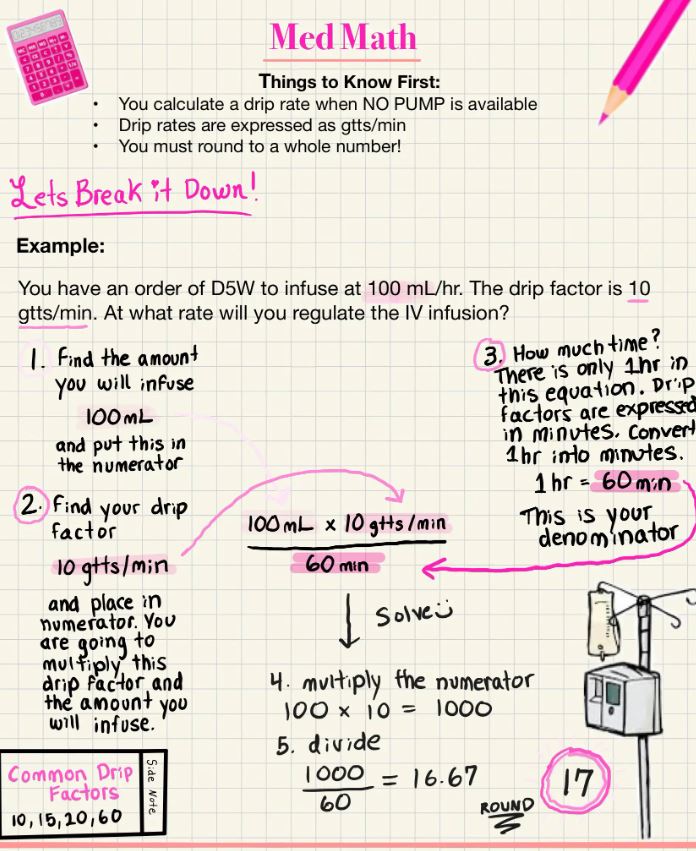 Med Math
Things to Know First:
• You calculate a drip rate when NO PUMP is available
• Drip rates are expressed as gtts/min
• You must round to a whole number!
Lets Break it Down!
Example:
You have an order of D5W to infuse at 100 mL/hr. The drip factor is 10
gtts/min. At what rate will you regulate the IV infusion?
1. Find the amount
you will infuse
100mL
and put this in
the numerator
2. Find your drip
factor
10 gtts/min
and place in
numerator. You
are going to
multiply this
drip factor and
the amount you
will infuse.
3. How much time?
There is only 1hr in
this equation. Drip
factors are expressed
in minutes. Convert
1hr into minutes.
1hr = 60min
This is your
denominator
100mL x 10 gtts/min
60 min
Solve
4. multiply the numerator
100 x 10 = 1000
5. divide
1000
60
= 16.67
ROUND
17
Common Drip
Factors
10, 15, 20, 60
Side Note